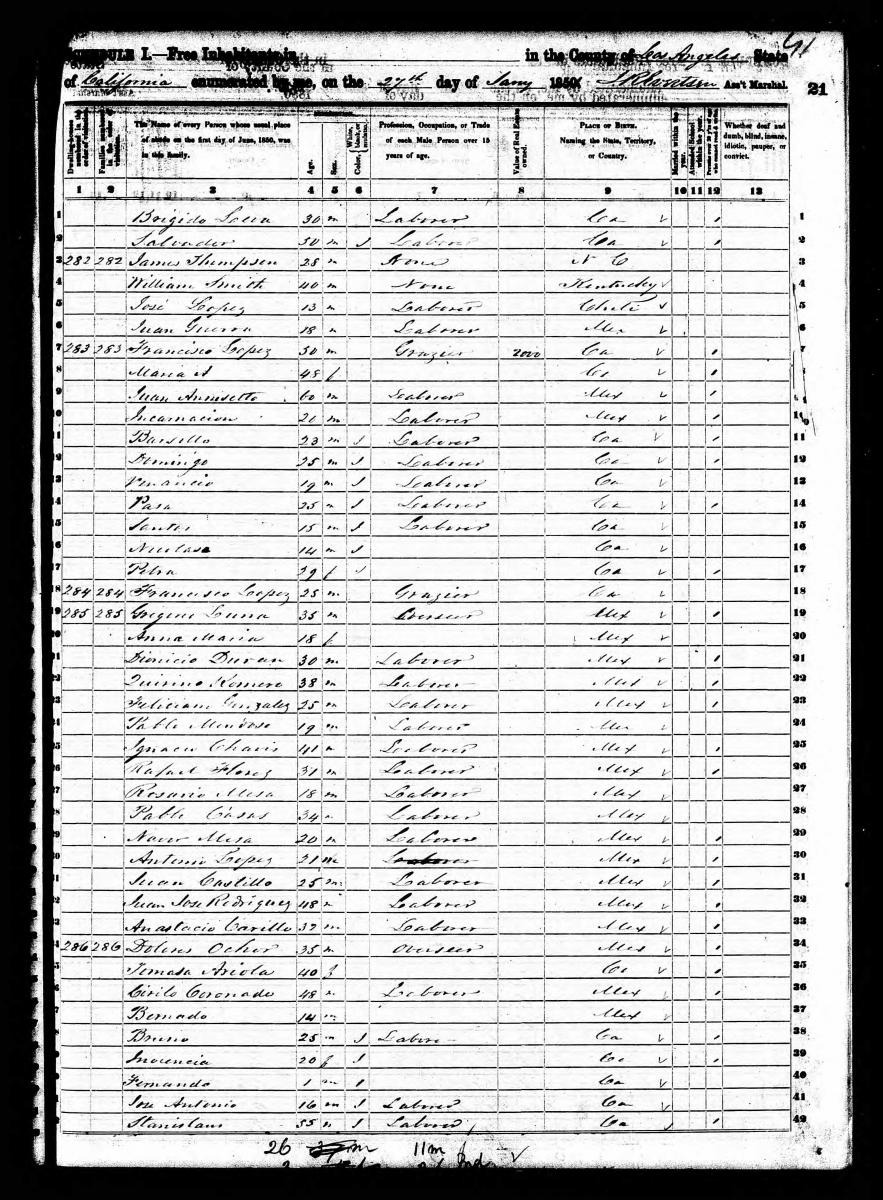 41
SCHEDULE I.—Free Inhabitants in in the County of Los Angeles State
of California enumerated by me, on the 27th day of Jany 1850. Ass't Marshal. 21
Dwelling-houses numbered in the order of visitation.
Families numbered in the order of visitation.
The Name of every Person whose usual place of abode on the first day of June, 1850, was in this family.
Age.
Sex.
White, black, or mulatto. Color,
Profession, Occupation, or Trade of each Male Person over 15 years of age.
Value of Real Estate owned.
PLACE OF BIRTH. Naming the State, Territory, or Country.
Married within the year.
Attended School within the year.
Persons over 20 y'rs of age who cannot read & write.
Whether deaf and dumb, blind, insane, idiotic, pauper, or convict.
1 2 3 4 5 6 7 8 9 10 11 12 13
1 Brigido 30 m Laborer Ca v 1 1
2 Salvador 30 m I Laborer Ca v 1 2
3 282 282 James Thompson 28 m None N C 3
4 William Smith 40 m None Kentucky v 4
5 José Lopez 13 m Laborer Chili v 5
6 Juan Guerra 18 m Laborer Mex v 6
7 283 283 Francisco Lopez 50 m Grazier 2000 Ca v 1 7
8 Maria A 48 f Ca v 1
9 Juan 60 m Laborer Mex v 1 9
10 Incarnacion 20 m Laborer Mex v 1 10
11 23 m I Laborer Ca v 1 11
12 Domingo 25 m I Laborer Ca v 1 12
13 Venancio 19 m I Laborer Ca v 13
14 25 m I Laborer Ca v 1 14
15 Santos 15 m I Laborer Ca v 15
16 Nicolasa 14 m I Ca v 16
17 Petra 29 f I Ca v 1 17
18 284 284 Francisco Lopez 25 m Grazier Ca v 18
19 285 285 Luna 35 m Overseer Mex v 1 19
20 Anna Maria 18 f Mex v 20
21 Dionicio Duran 30 m Laborer Mex v 1 21
22 Quirino Romero 38 m Laborer Mex v 1 22
23 Feliciano Gonzalez 25 m Laborer Mex v 1 23
24 Pablo Mendosa 19 m Laborer Mex v 24
25 Ignacio Chavis 41 m Laborer Mex v 1 25
26 Rafael Florez 31 m Laborer Mex v 1 26
27 Rosario Mesa 18 m Laborer Mex v 27
28 Pablo Casas 34 m Laborer Mex v 28
29 Mesa 20 m Laborer Mex v 1 29
30 Antonio Lopez 21 m Laborer Mex v 1 30
31 Juan Castillo 25 m Laborer Mex v 1 31
32 Juan Jose Rodriguez 48 m Laborer Mex v 1 32
33 Anastacio Carillo 32 m Laborer Mex v 1 33
34 286 286 Dolores Ochoa 35 m Overseer Mex v 1 34
35 Tomasa Ariola 40 f Ca v 1 35
36 Cirilo Coronado 48 m Laborer Mex v 1 36
37 Bernado 14 m Mex v 37
38 Bruno 25 m I Laborer Ca v 1 38
39 Inocencia 20 f I Ca v 1 39
40 Fernando 1 m I Ca v 40
41 Jose Antonio 16 m I Laborer Ca v 41
42 Stanislaus 55 m I Laborer Ca 1 42
26 11m